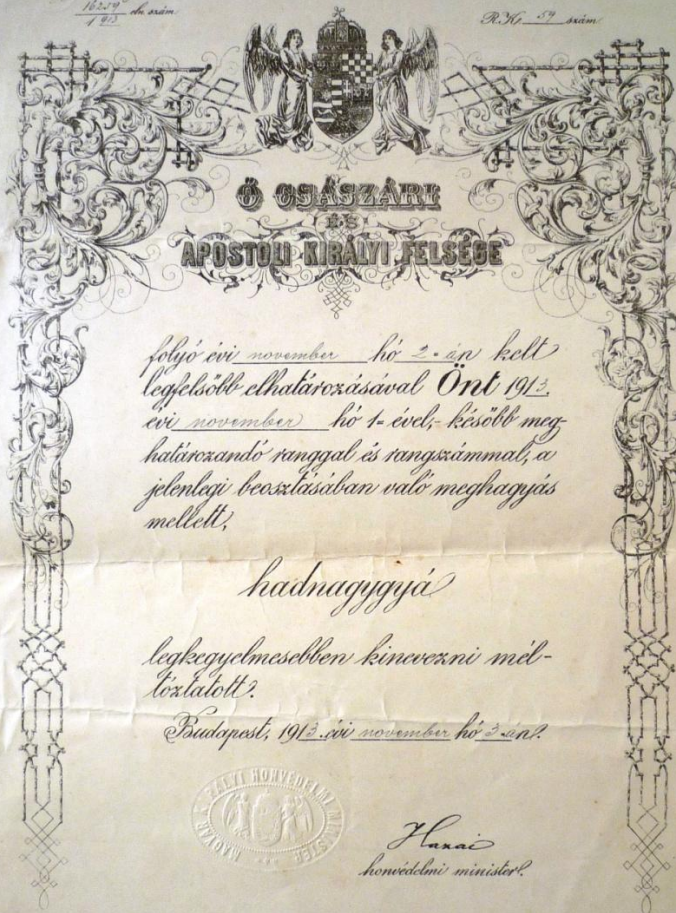 16259 eln. szám
1913
R.K. 59 szám
Ő CSÁSZÁRI
ÉS
APOSTOLI KIRÁLYI FELSÉGE
folyó évi november hó 2-án kelt
legfelsőbb elhatározásával Önt 1913.
évi november hó 1-ével, - később meg-
határozandó ranggal és rangszámmal, a
jelenlegi beosztásában való meghagyás
mellett,
hadnagygyá
legkegyelmesebben kinevezni mél-
tóztatott.
Budapest, 1913. évi november hó 3-án.
MAGYAR KIRÁLYI HONVÉDELMI MINISTER
Hazai
honvédelmi minister.